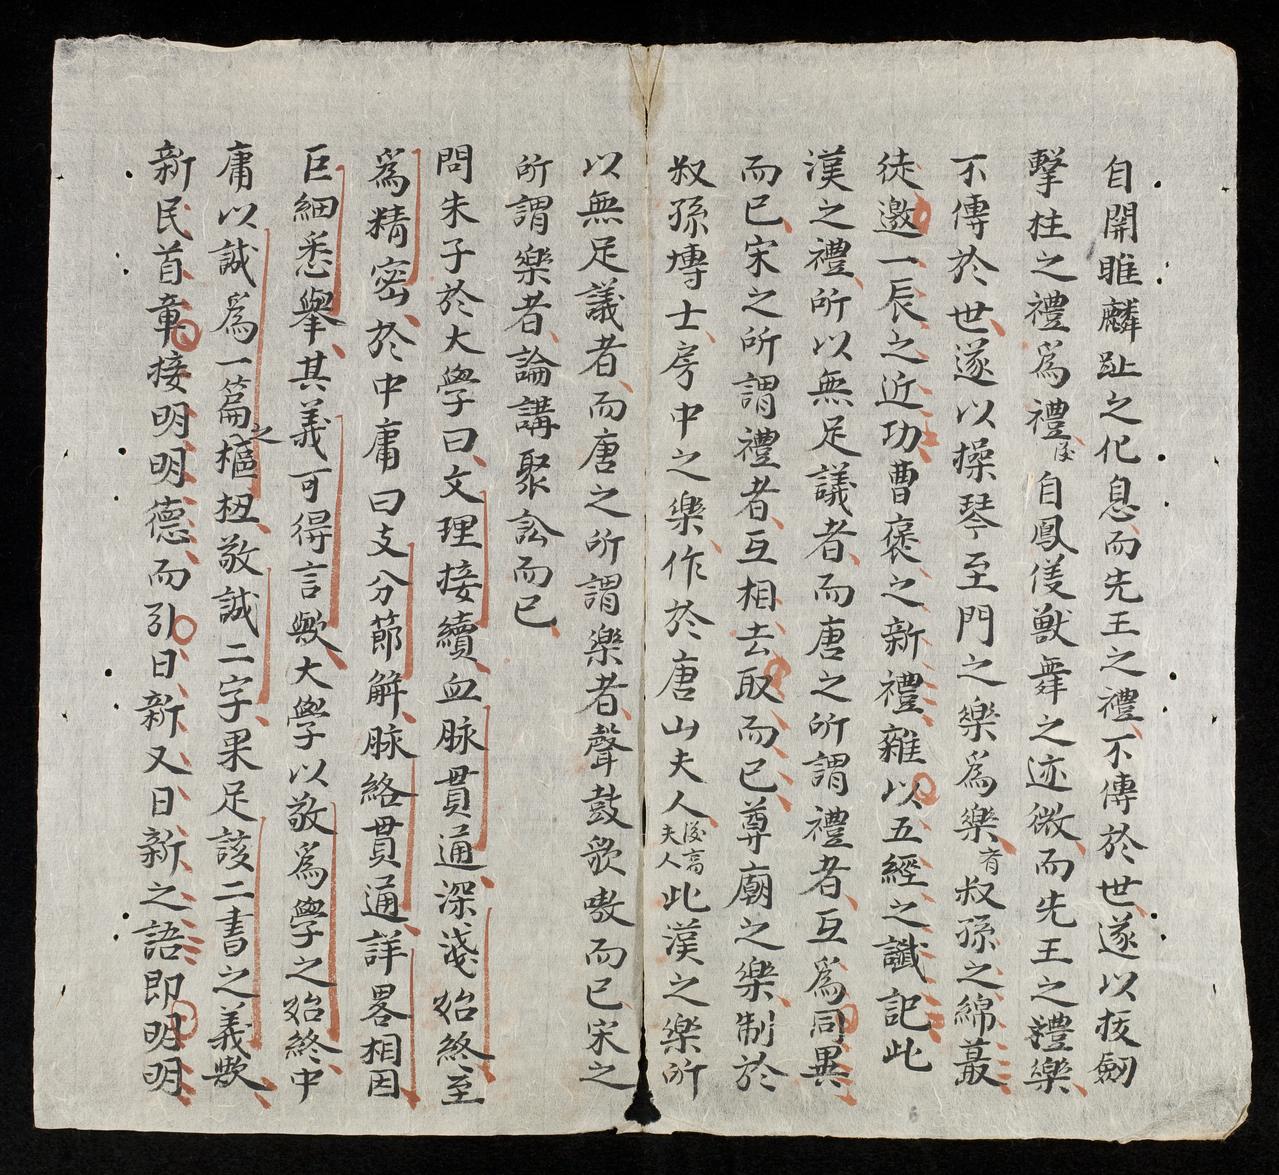 自關雎麟趾之化息而先王之禮不傳於世遂以拔劒
擊柱之禮爲禮後自鳳儀獸舞之迹微而先王之禮樂
不傳於世遂以操琴至門之樂爲樂者叔孫之綿蕞
徒邀一辰之近功曹褒之新禮雜以五經之讖記此
漢之禮所以無足議者而唐之所謂禮者互爲同異
而已宋之所謂禮者互相去取而已尊廟之樂制於
叔孫博士房中之樂作於唐山夫人後高夫人此漢之樂所
以無足議者而唐之所謂樂者聲鼓歌噭而已宋之
所謂樂者論講聚訟而已
問朱子於大學曰文理接續血脉貫通深淺始終至
爲精密於中庸曰支分節解脉絡貫通詳畧相因
巨細悉擧其義可得言歟大學以敬爲學之始終中
庸以誠爲一篇之樞扭敬誠二字果足該二書之義歟
新民首章接明明德而引日新又日新之語即明明